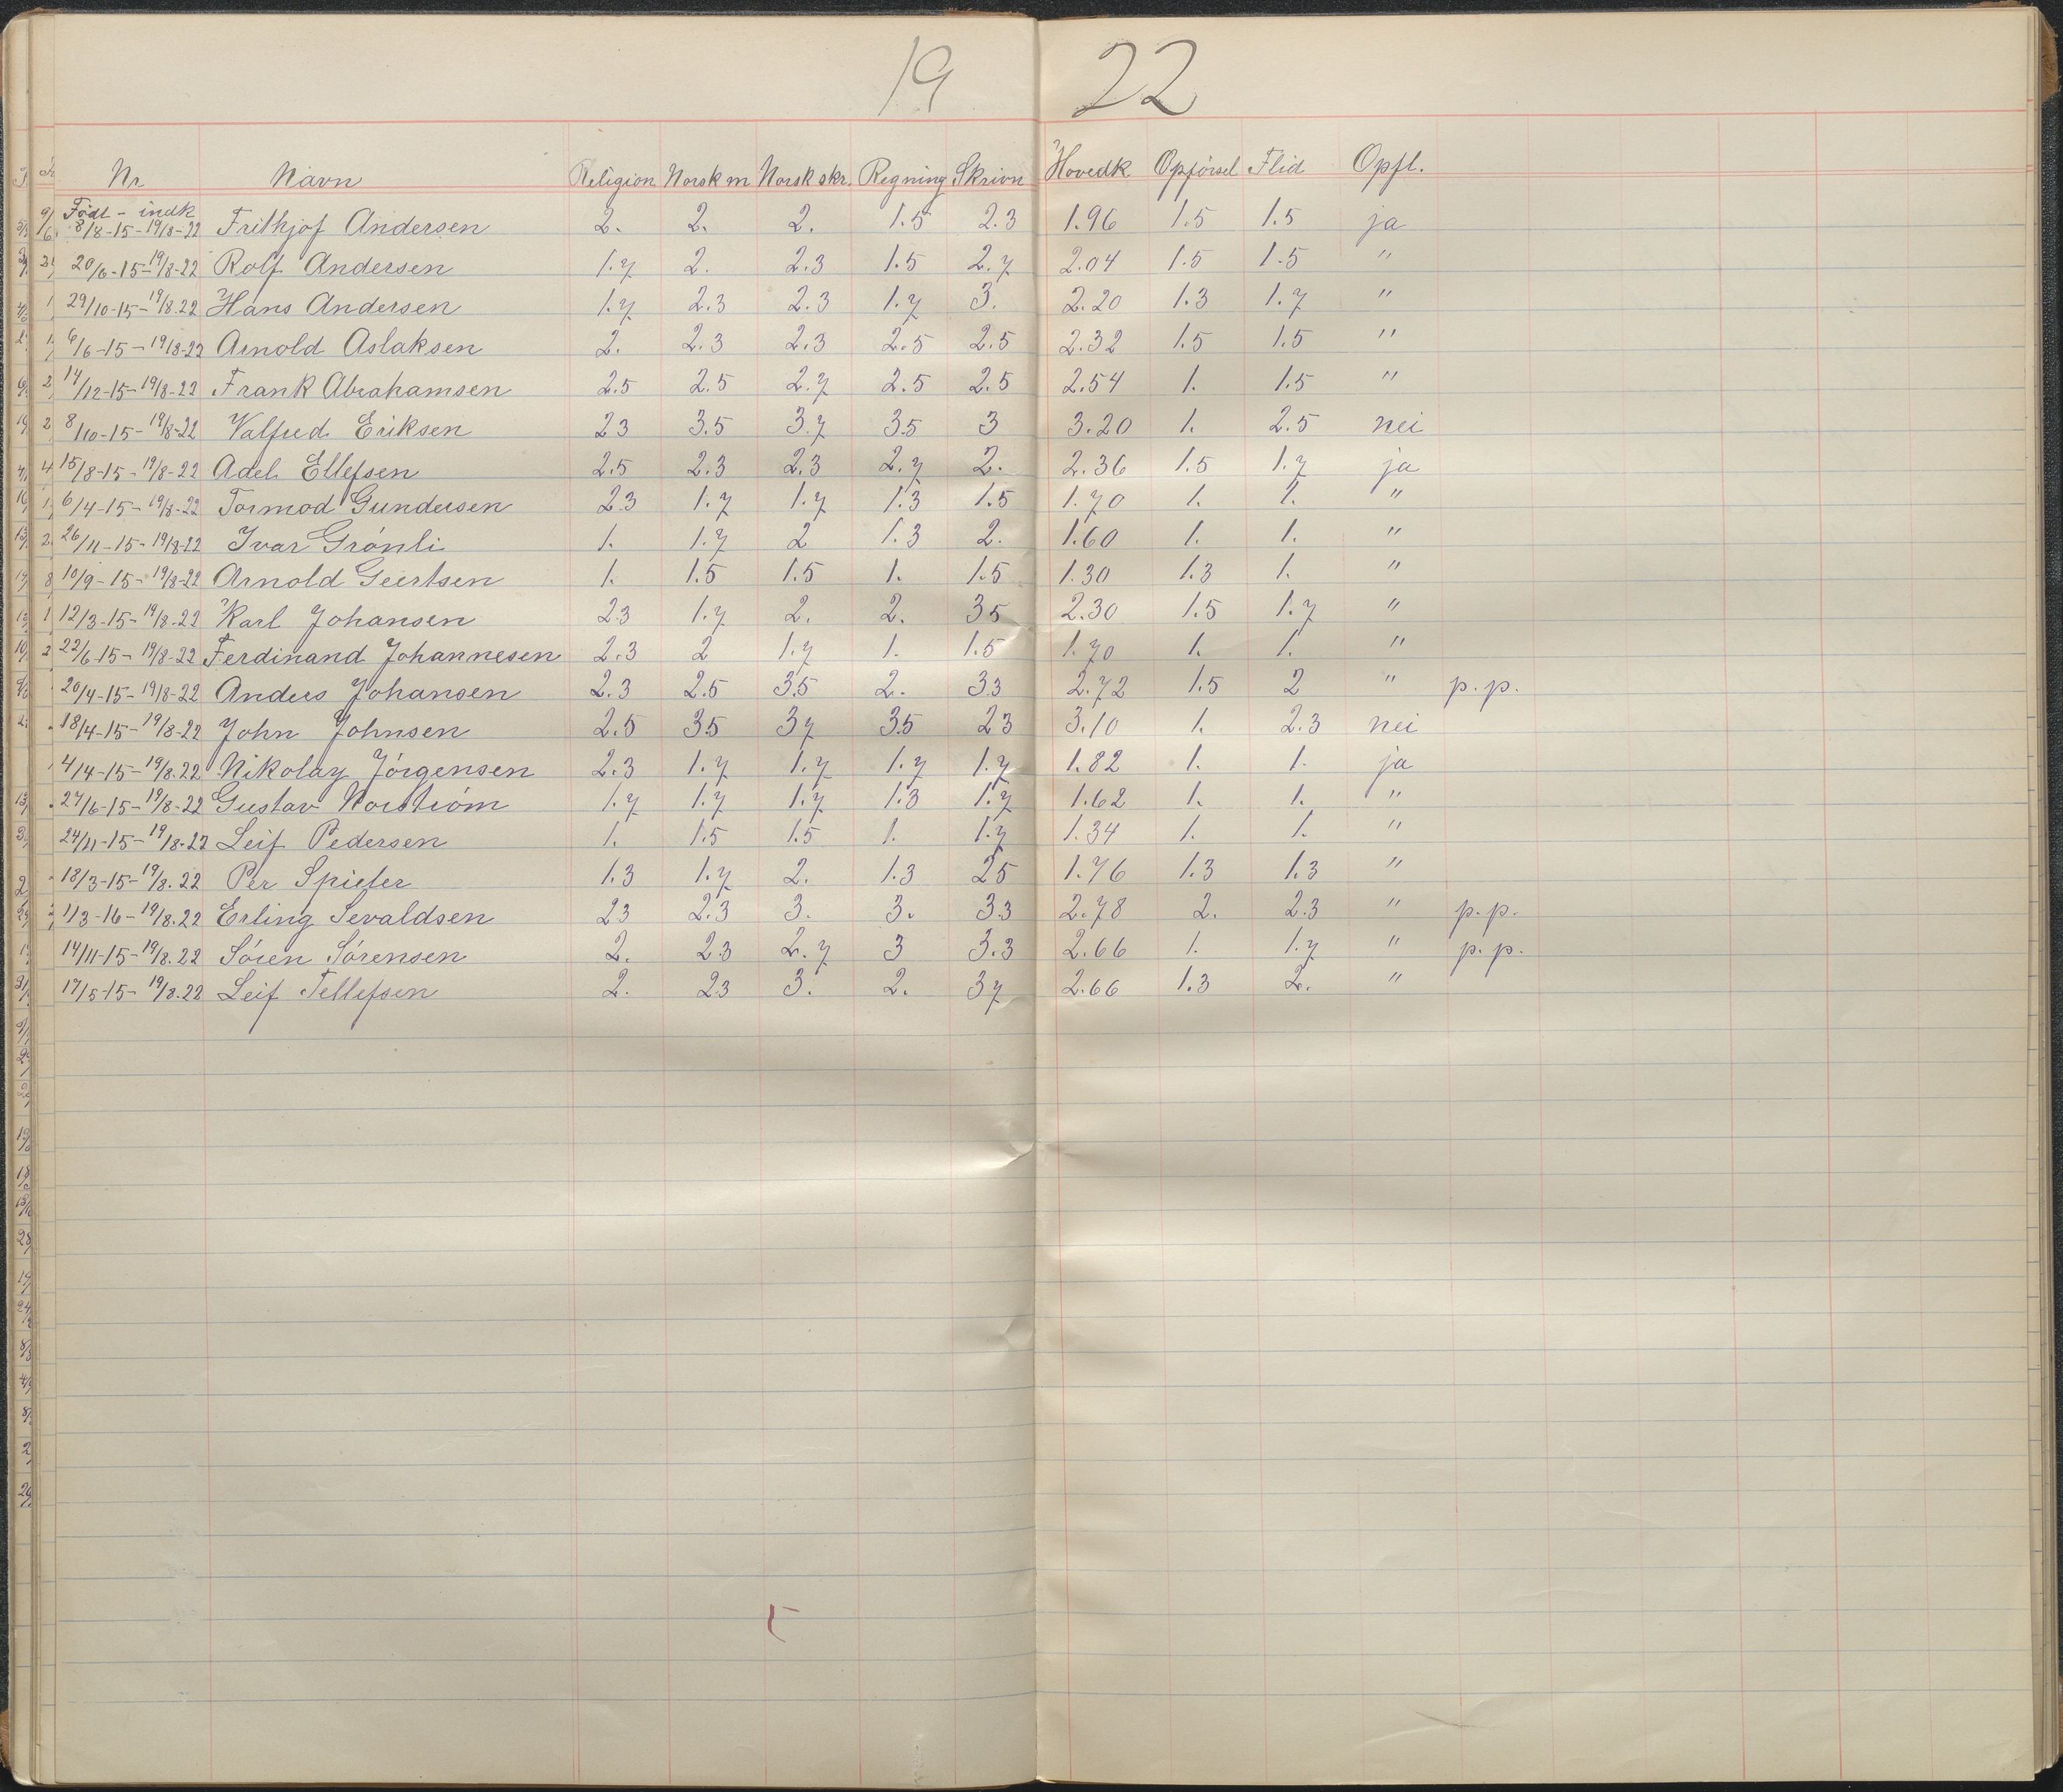 19 22
Nr Navn Religion Norsk m Norsk skr. Regning Skrivn Hovedk. Opførsel Flid Opfl.
Født - indk
8/8-15-19/8-22 Frithjof Andersen 2. 2. 2. 1.5 2.3 1.96 1.5 1.5 ja
20/6-15-19/8-22 Rolf Andersen 1.7 2. 2.3 1.5 2.7 2.04 1.5 1.5 "
29/10-15-19/8.22 Hans Andersen 1.7 2.3 2.3 1.7 3. 2.20 1.3 1.7 "
6/6-15-19/8-22 Arnold Aslaksen 2. 2.3 2.3 2.5 2.5 2.32 1.5 1.5 "
14/12-15-19/8-22 Frank Abrahamsen 2.5 2.5 2.7 2.5 2.5 2.54 1. 1.5 "
8/10-15-19/8-22 Valfred Eriksen 23 3.5 3.7 35 3 3.20 1. 2.5 nei
15/8-15-19/8-22 Adel Ellefsen 2.5 2.3 2.3 2.7 2. 2.36 1.5 1.7 ja
6/4-15-19/8-22 Tormod Gundersen 23 1.7 1.7 1.3 1.5 1.70 1. 1. "
26/11-15-19/8-22 Ivar Grønli 1. 1.7 2 1.3 2. 1.60 1. 1. "
10/9-15-19/8-22 Arnold Geertsen 1. 1.5 1.5 1. 1.5 1.30 1.3 1. "
12/3-15-19/8-22 Karl Johansen 23 1.7 2. 2. 35 2.30 1.5 1.7 "
22/6-15-19/8-22 Ferdinand Johannesen 2.3 2 1.7 1. 1.5 1.70 1. 1. "
20/4-15-19/8-22 Anders Johansen 2.3 2.5 3.5 2. 33 2.72 1.5 2 " p.p.
18/4-15-19/8-22 John Johnsen 2.5 35 37 35 23 3.10 1. 2.3 nei
4/4-15-19/8.22 Nikolay Jørgensen 2.3 1.7 1.7 1.7 1.7 1.82 1. 1. ja
27/6-15-19/8-22 Gustav Norstrøm 1.7 1.7 1.7 1.3 1.7 1.62 1. 1. "
24/11-15-19/8-22 Leif Pedersen 1. 1.5 1.5 1. 1.7 1.34 1. 1. "
18/3-15-19/8.22 Per Spieler 1.3 1.7 2. 1.3 25 1.76 1.3 1.3 "
1/3-16-19/8.22 Erling Sevaldsen 23 2.3 3. 3. 33 2.78 2. 2.3 " p.p.
14/11-15-19/8.22 Søren Sørensen 2. 23 2.7 3 3.3 2.66 1. 1.7 " p.p.
17/5-15-19/8.22 Leif Tellefsen 2. 23 3. 2. 37 2.66 1.3 2. "